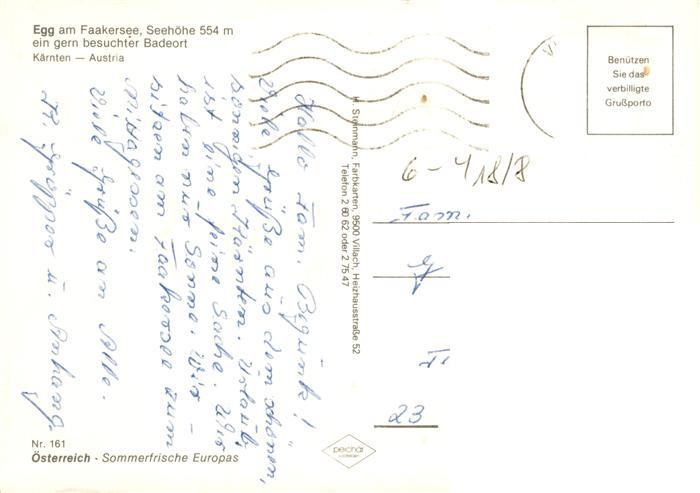 Egg am Faakersee, Seehöhe 554 m
ein gern besuchter Badeort
Kärnten — Austria
Hallo Fam.
viele Grüße aus dem schönen,
sonnigen Kärnten. Urlaub,
ist eine feine Sache. Wir
haben nur Sonne. Wir -
sitzen am Faakersee zum
Mittagessen.
Viele Grüße an Alle.
H. Steinmann, Farbkarten, 9500 Villach, Heizhausstraße 52
Telefon 2 60 62 oder 2 75 47
Benützen
Sie das
verbilligte
Grußporto
6-418/8
Fam.
23
Nr. 161
Österreich · Sommerfrische Europas
peichär